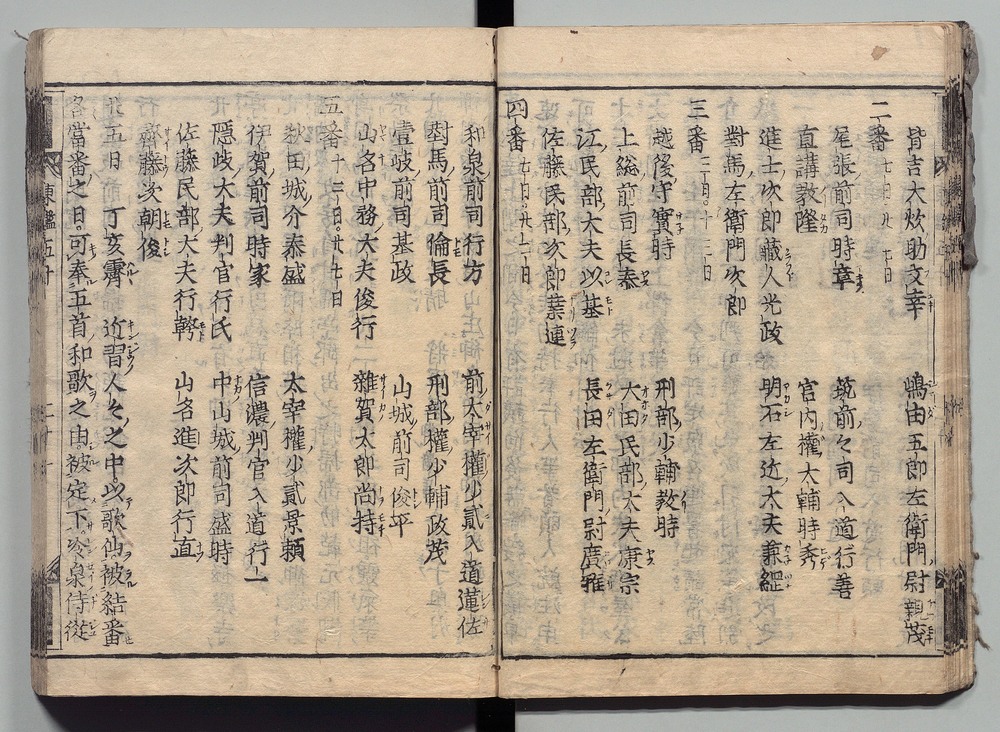 皆吉大炊助文幸 嶋田五郎左衛門尉親茂
二番
尾張前司時章 筑前々司入道行善
直講教隆 宮内權大輔時秀
進士次郎藏人光政 明石左近大夫兼經
對馬左衛門次郎
三番
越後守實時 刑部少輔教時
上総前司長泰 大田民部大夫康宗
江民部大夫以基 長田左衛門尉廣雅
佐藤民部次郎業連
四番
和泉前司行方 前太宰權少貳入道蓮佐
對馬前司倫長 刑部權少輔政茂
壹岐前司基政 山城前司俊平
山名中務大夫俊行 雜賀太郎尚持
五番 十三日。廿九日
秋田城介泰盛 太宰權少貳景頼
伊賀前司時家 信濃判官入道行一
隠岐大夫判官行氏 中山城前司盛時
佐藤民部大夫行幹 山名進次郎行直
齋藤次朝俊
廿五日 丁亥霽 近習人々之中以歌仙被結番
各當番之日。可奉五首和歌之由被定下冷泉侍從
東鑑五十